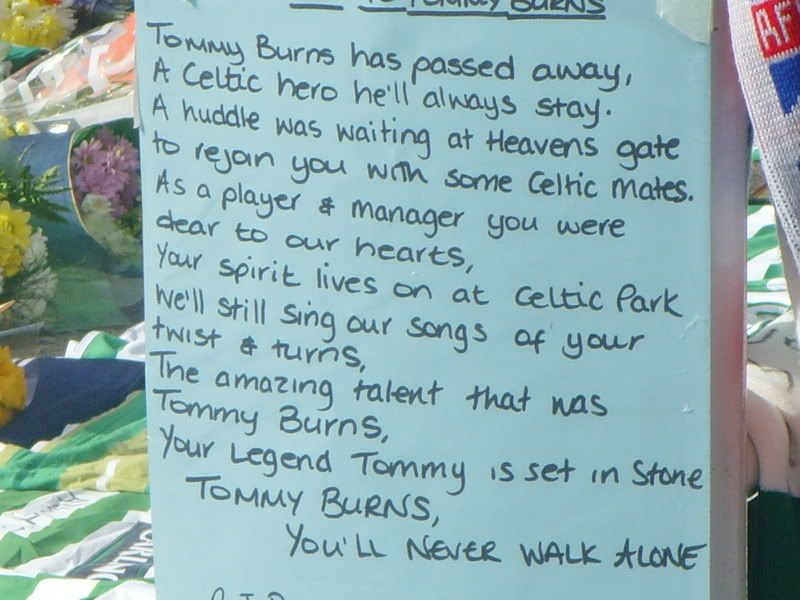 TO TOMMY BURNS
Tommy Burns has passed away,
A Celtic hero he'll always stay.
A huddle was waiting at Heavens gate
to rejoin you with some Celtic mates.
As a player & manager you were
dear to our hearts,
Your spirit lives on at Celtic Park
We'll still sing our songs of your
twist & turns,
The amazing talent that was
Tommy Burns,
Your Legend Tommy is set in Stone
TOMMY BURNS,
YOU'LL NEVER WALK ALONE
AF
CARLING